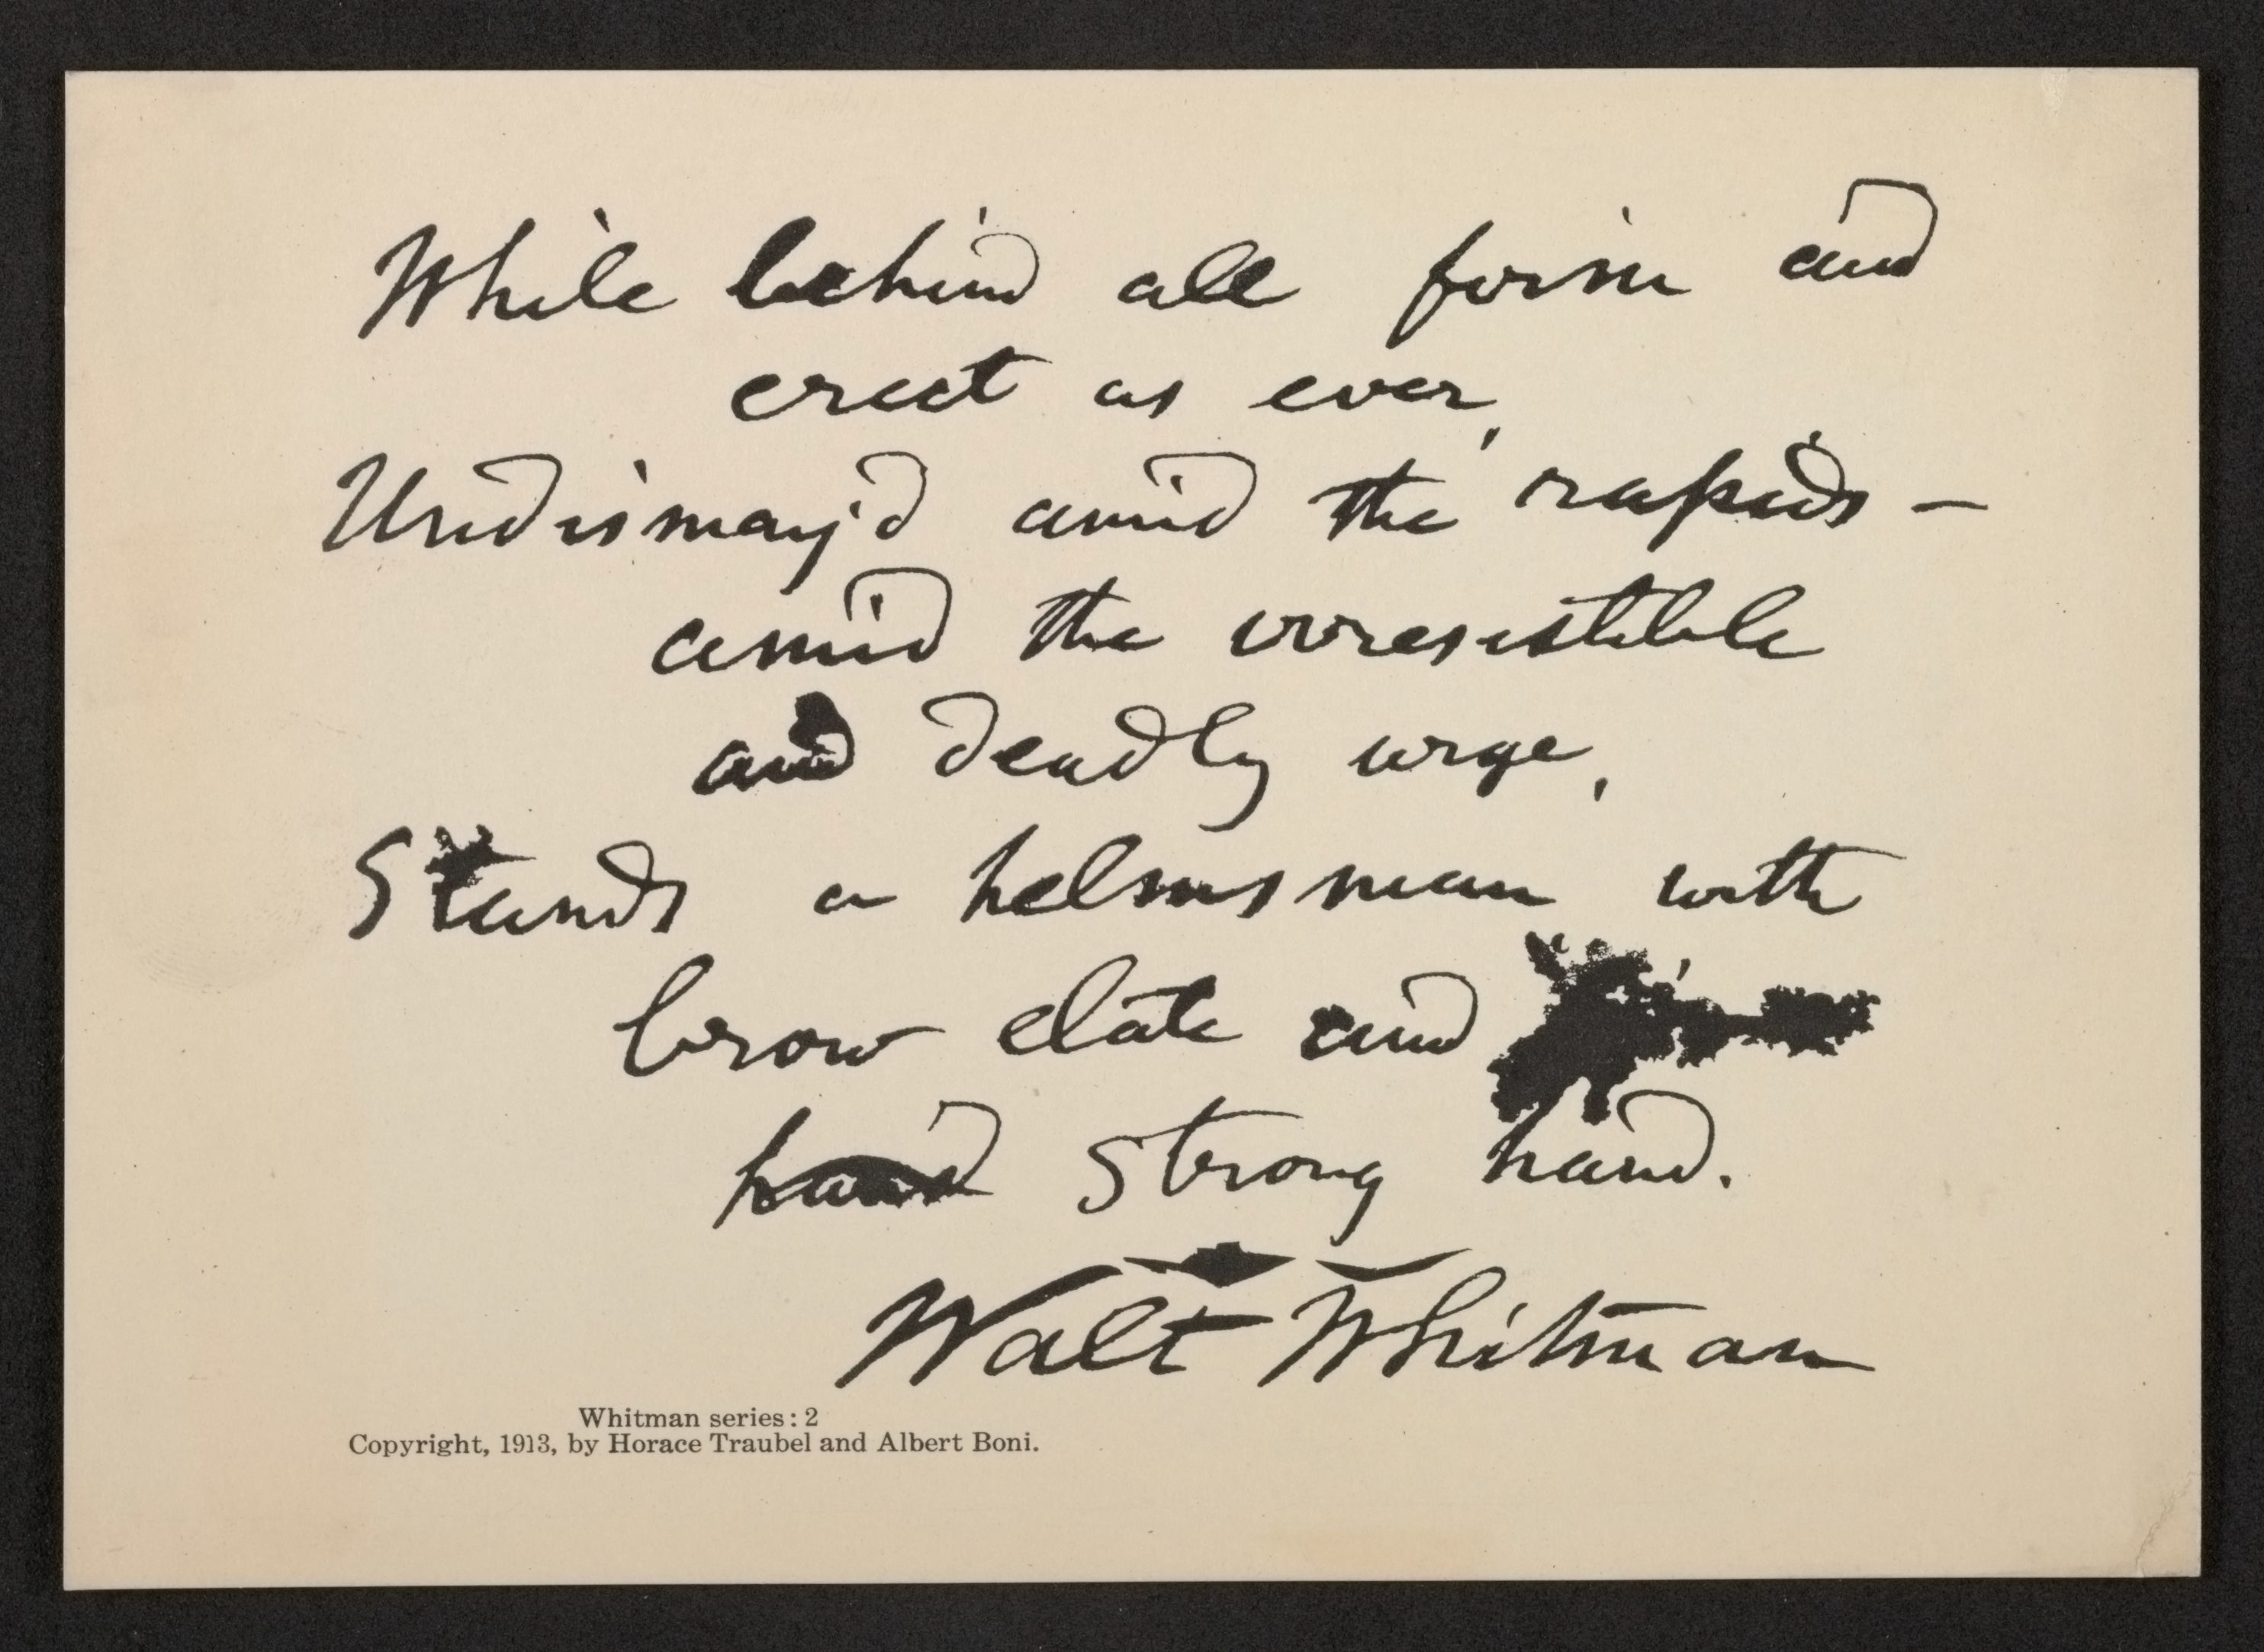 While behind all firm and
erect as ever,
Undismay'd amid the rapids —
amid the irresistible
and deadly urge,
Stands a helmsman with
brow elate and
hand strong hand.
Walt Whitman
Whitman series: 2
Copyright, 1913, by Horace Traubel and Albert Boni.